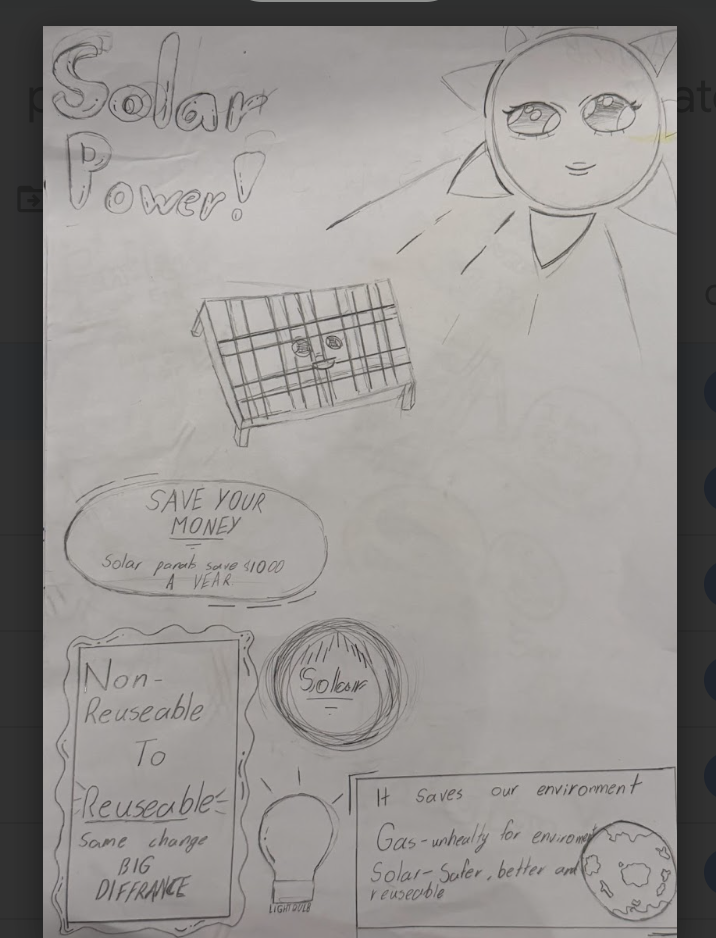 Solar
Power!
SAVE YOUR
MONEY
Solar panals save $1000
A YEAR
Non-
Reuseable
To
Reuseable
Same change
BIG
DIFFRANCE
Solar
It saves our environment
Gas-unhealty for enviroment
Solar-Safer, better and
reuseable